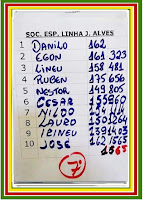 SOC. ESP. LINHA J. ALVES
1 DANILO 162
2 EGON 161 323
3 LINEU 158 481
4 RUBEN 175 656
5 NESTOR 149 805
6 CESAR 155 960
7 NILDO 154 1114
8 LAURO 150 1264
9 IRINEU 139 1403
10 JOSÉ 162 1565
1565
7º